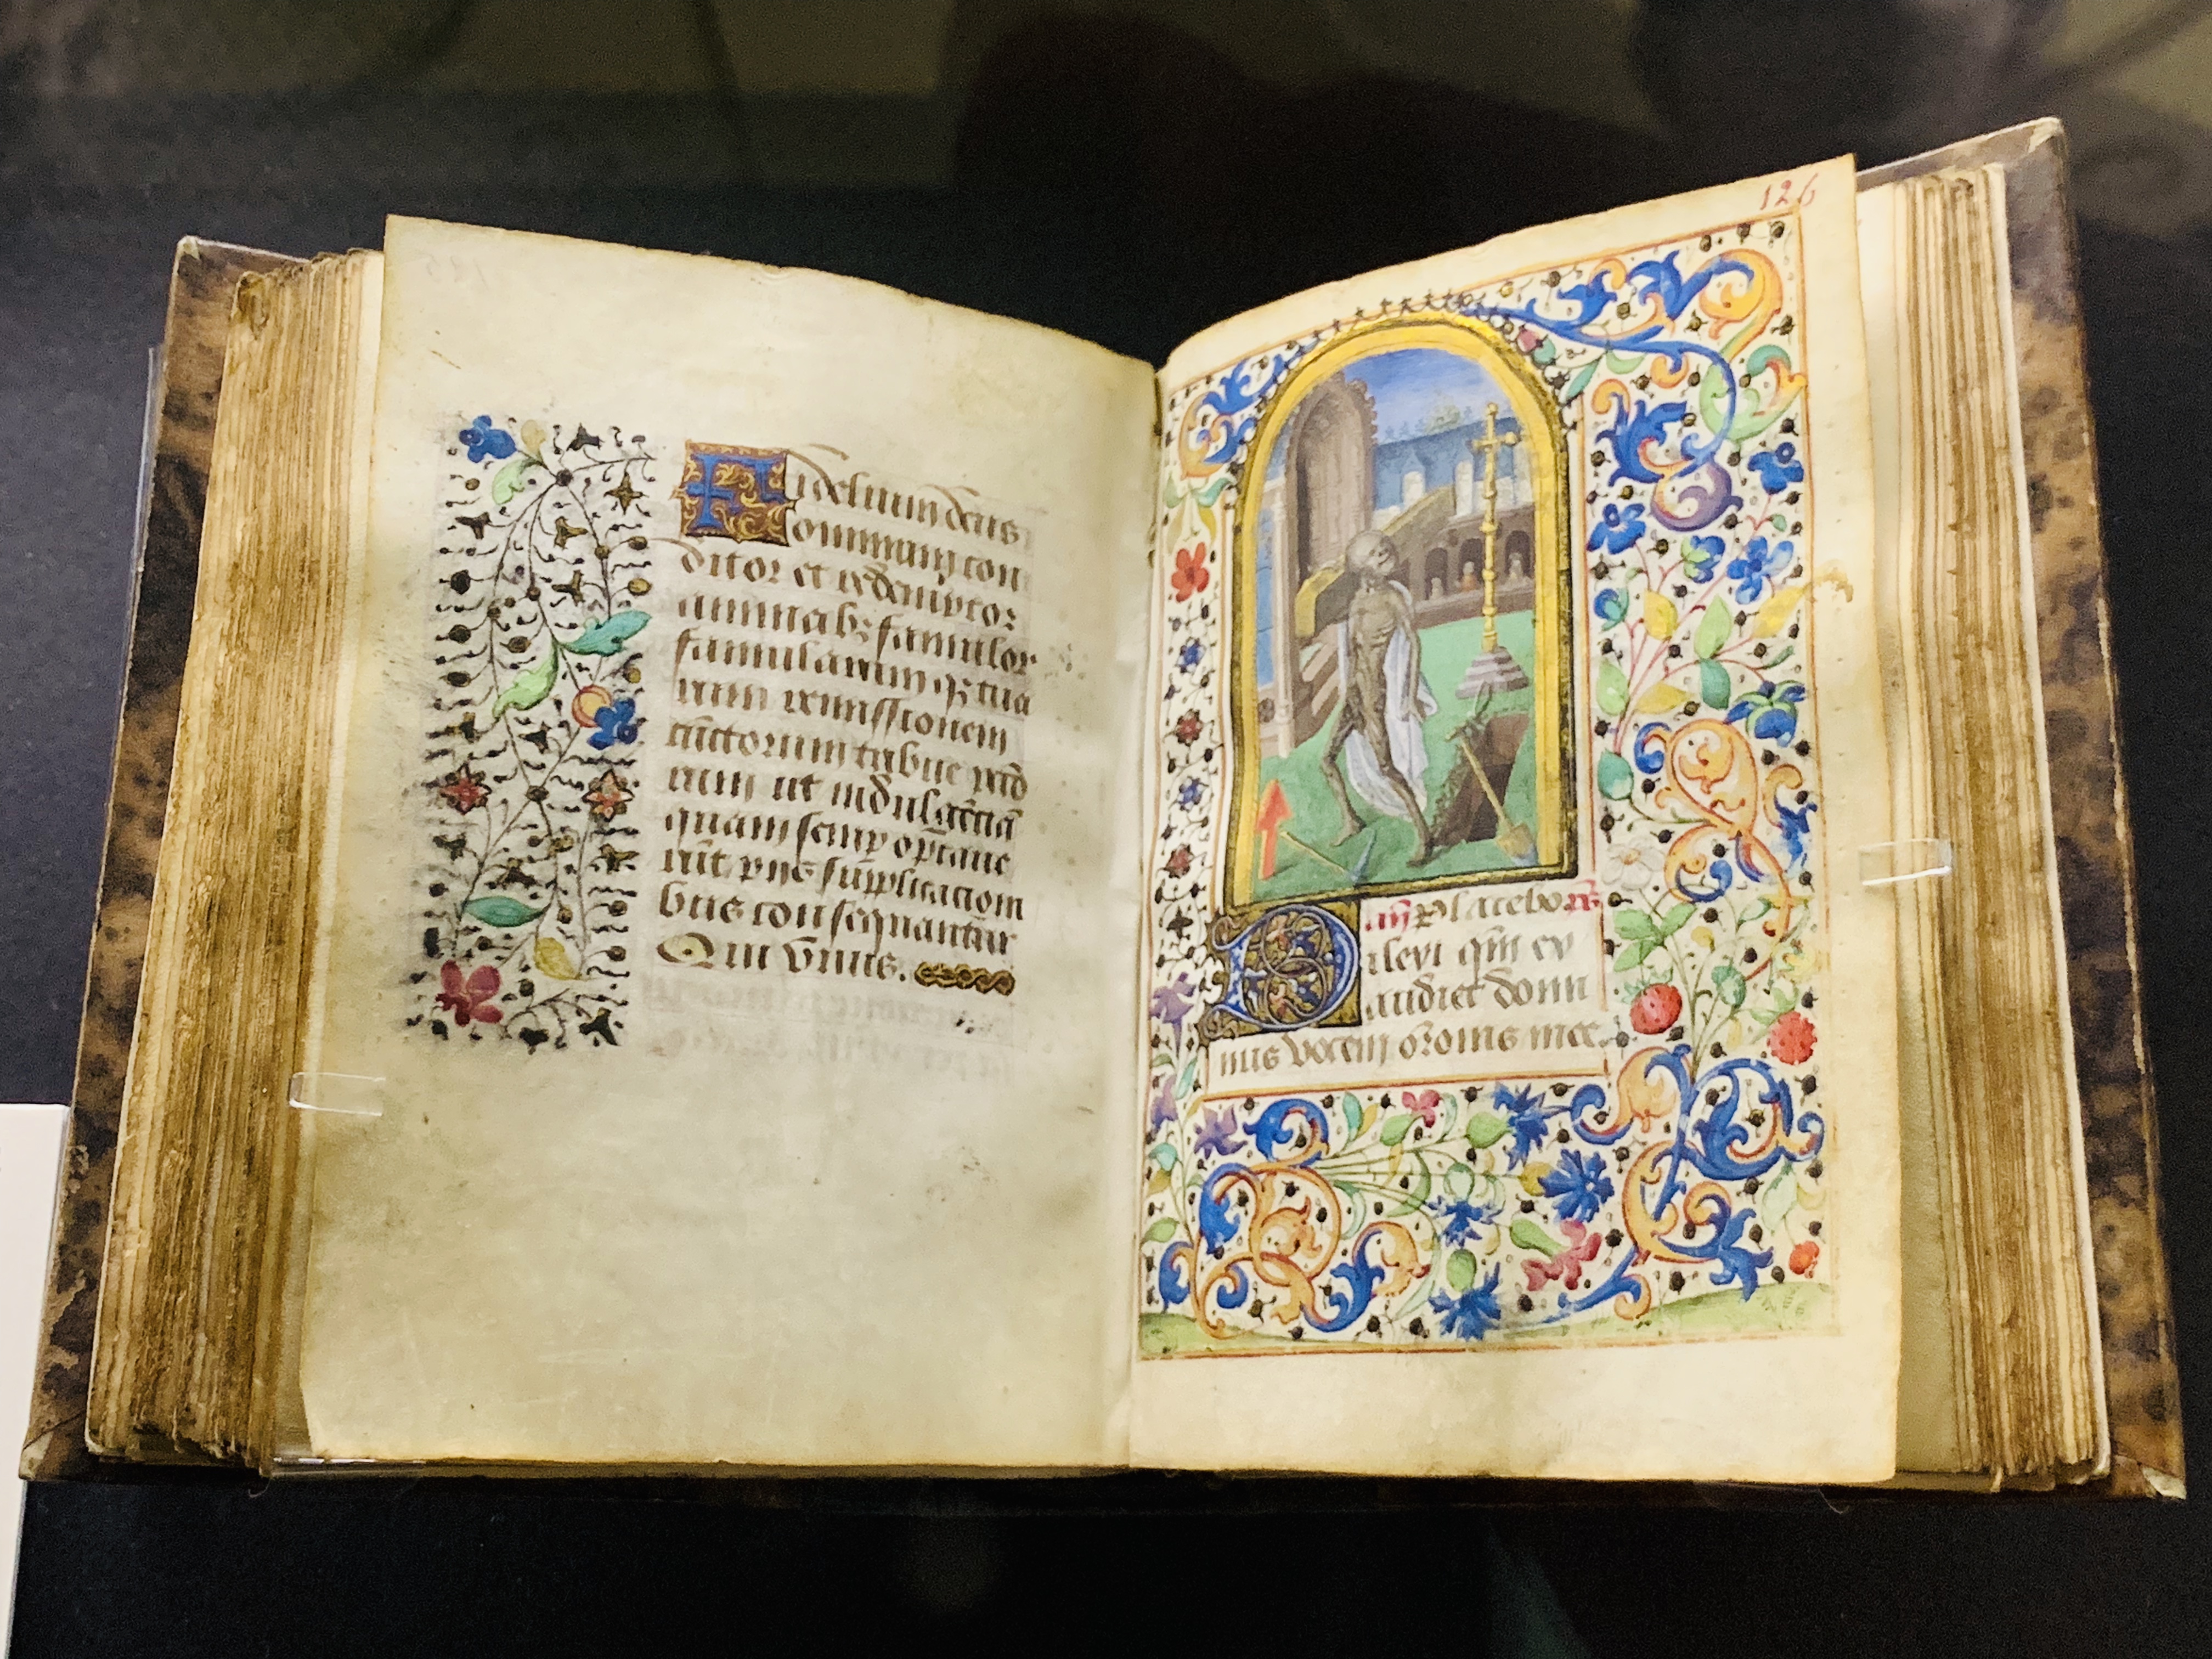 Fidelium deus
omnium con
ditor et redemptor
animabꝫ famulor
famularum qꝫ tua
rum remissionem
cunctorum tribue pctō
rum ut indulgētiā
quam semp optaue
rūt pijs supplicationi
bus consequantur
Qui viuis.
126
añ Placebo
Dilexi qm̄ ex
audiet domi
nus vocem orōnis mee.